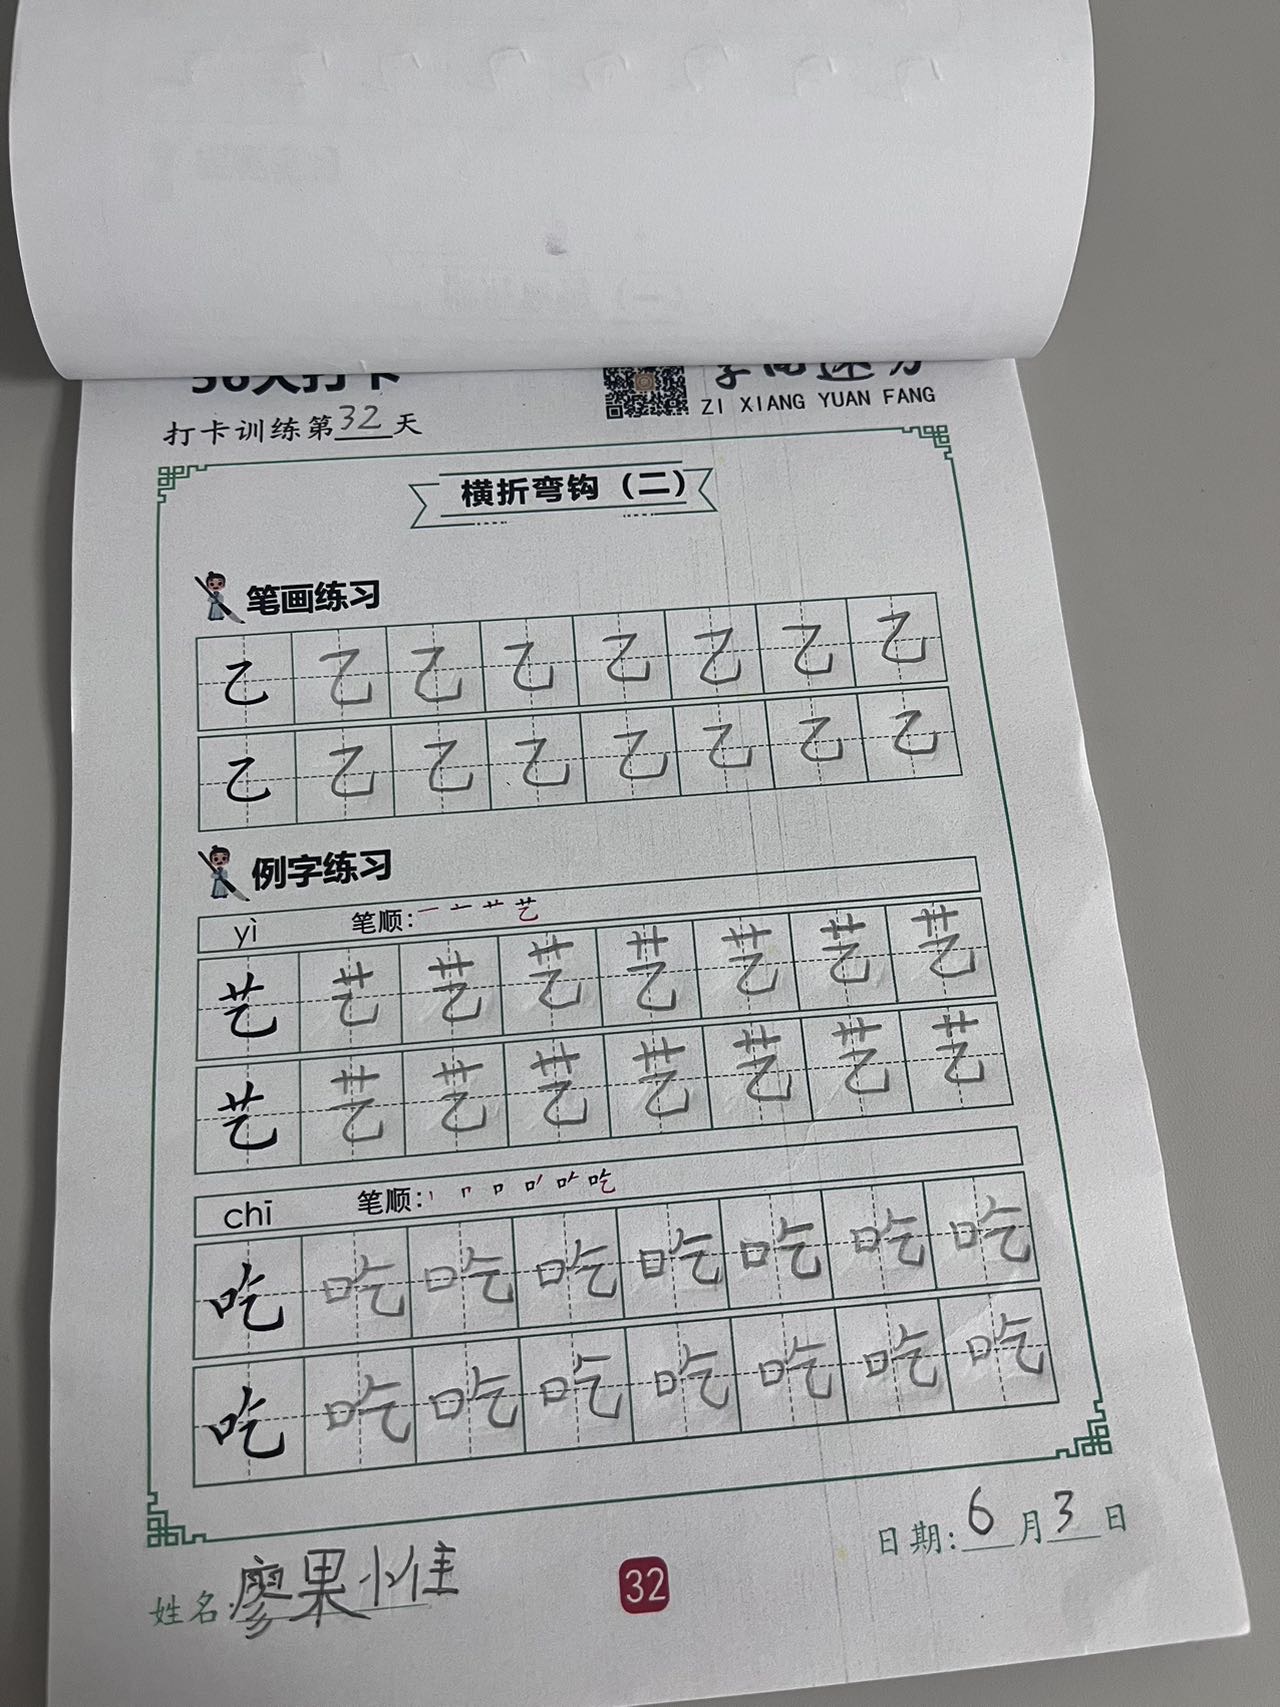 打卡训练第32天
ZI XIANG YUAN FANG
横折弯钩（二）
笔画练习
乙 乙 乙 乙 乙 乙 乙 乙
乙 乙 乙 乙 乙 乙 乙 乙
例字练习
yì 笔顺: 一 十 艹 艺
艺 艺 艺 艺 艺 艺 艺 艺
艺 艺 艺 艺 艺 艺 艺 艺
chī 笔顺: 吃
吃 吃 吃 吃 吃 吃 吃 吃
吃 吃 吃 吃 吃 吃 吃 吃
日期:6月3日
姓名:廖果惟
32